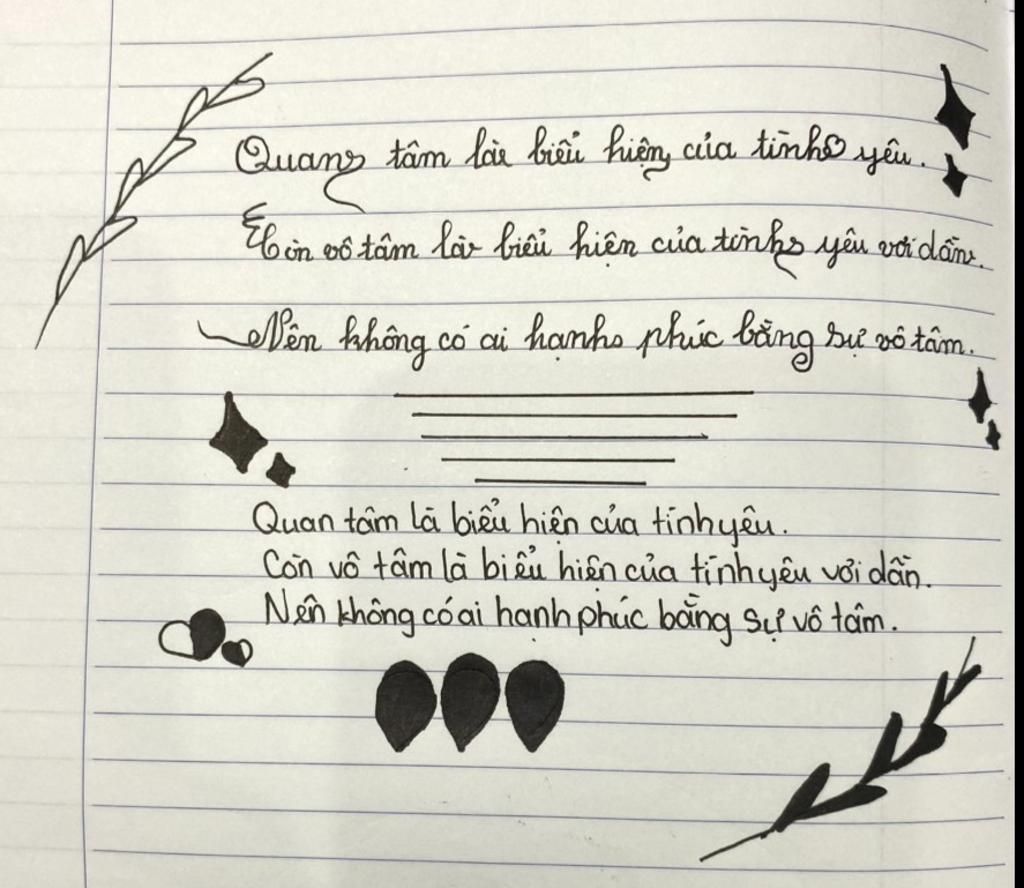 Quang tâm là biểu hiện của tình yêu.
Còn vô tâm là biểu hiện của tình yêu với dần.
Nên không có ai hạnh phúc bằng sự vô tâm.
Quan tâm là biểu hiện của tình yêu.
Còn vô tâm là biểu hiện của tình yêu vơi dần.
Nên không có ai hạnh phúc bằng sự vô tâm.